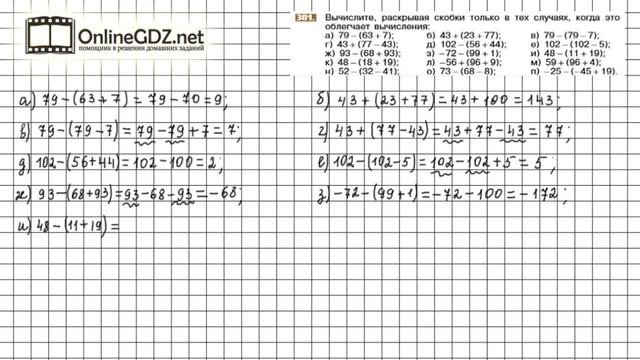 OnlineGDZ.net
помощник в решении домашних заданий
381. Вычислите, раскрывая скобки только в тех случаях, когда это
облегчает вычисления:
а) 79 – (63 + 7); б) 43 + (23 + 77); в) 79 – (79 – 7);
г) 43 + (77 – 43); д) 102 – (56 + 44); е) 102 – (102 – 5);
ж) 93 – (68 + 93); з) –72 – (99 + 1); и) 48 – (11 + 19);
к) 48 – (18 + 19); л) –56 + (96 + 9); м) 59 + (96 + 4);
н) 52 – (32 – 41); о) 73 – (68 – 8); п) –25 – (–45 + 19).
а) 79 – (63 + 7) = 79 – 70 = 9;
б) 43 + (23 + 77) = 43 + 100 = 143;
в) 79 – (79 – 7) = 79 – 79 + 7 = 7;
г) 43 + (77 – 43) = 43 + 77 – 43 = 77;
д) 102 – (56 + 44) = 102 – 100 = 2;
е) 102 – (102 – 5) = 102 – 102 + 5 = 5;
ж) 93 – (68 + 93) = 93 – 68 – 93 = – 68;
з) – 72 – (99 + 1) = – 72 – 100 = – 172;
и) 48 – (11 + 19) =